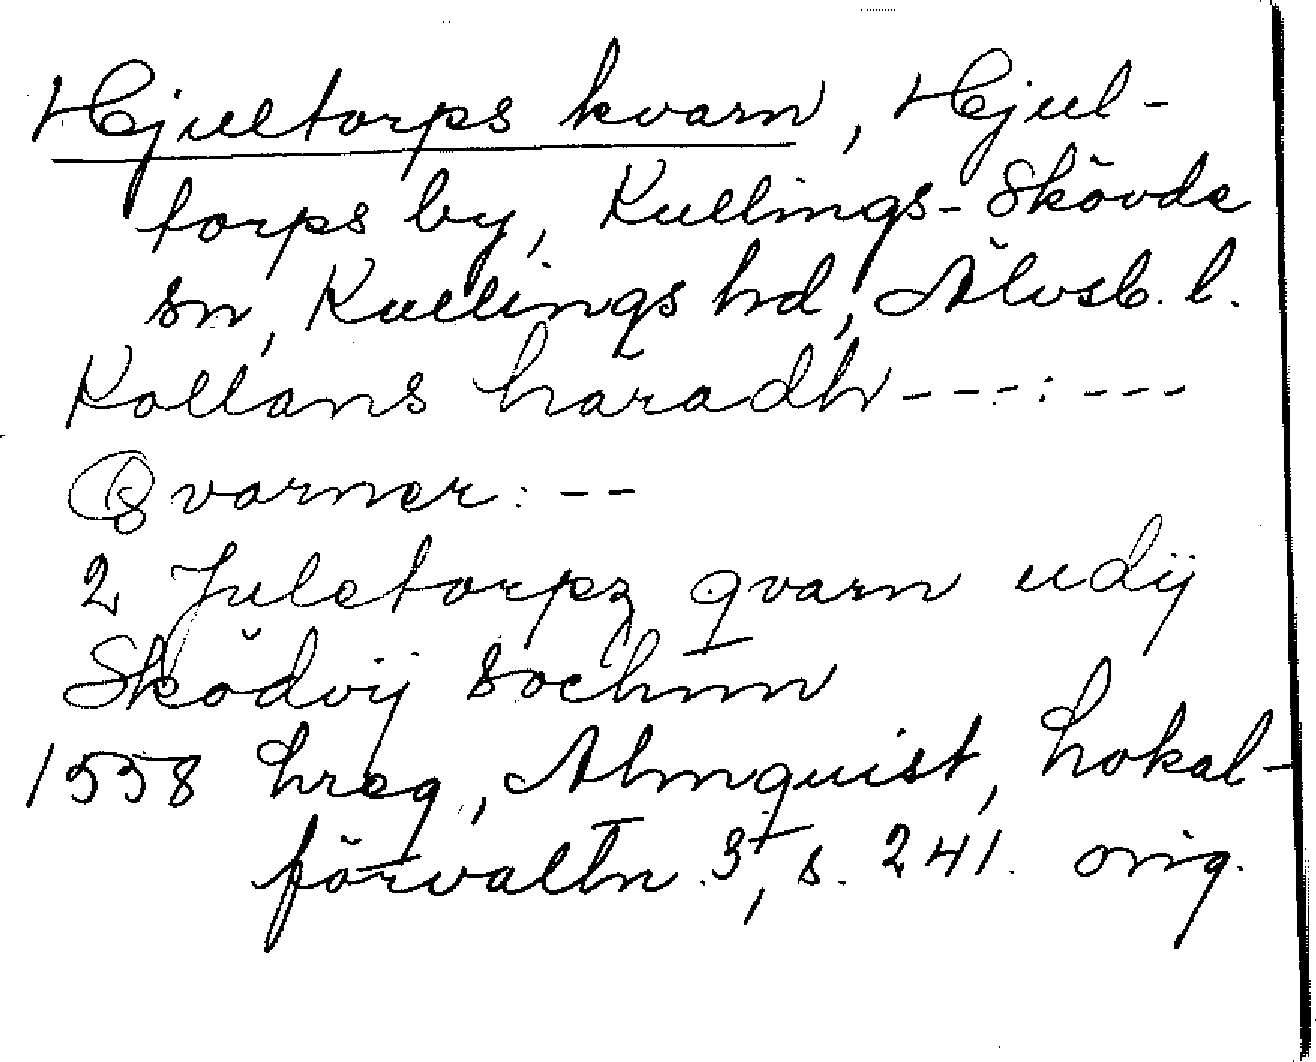 Hjultorps kvarn, Hjul-
torps by, Kullings-Skövde
sn, Kullings hd, Älvsb. l.
Kollans haradh ---:---
Qvarner: --
2 Juletorpz qvarn udij
Sködvij sochnn
1558 hreg, Almquist, Lokal-
förvaltn. 3, s. 241. orig.